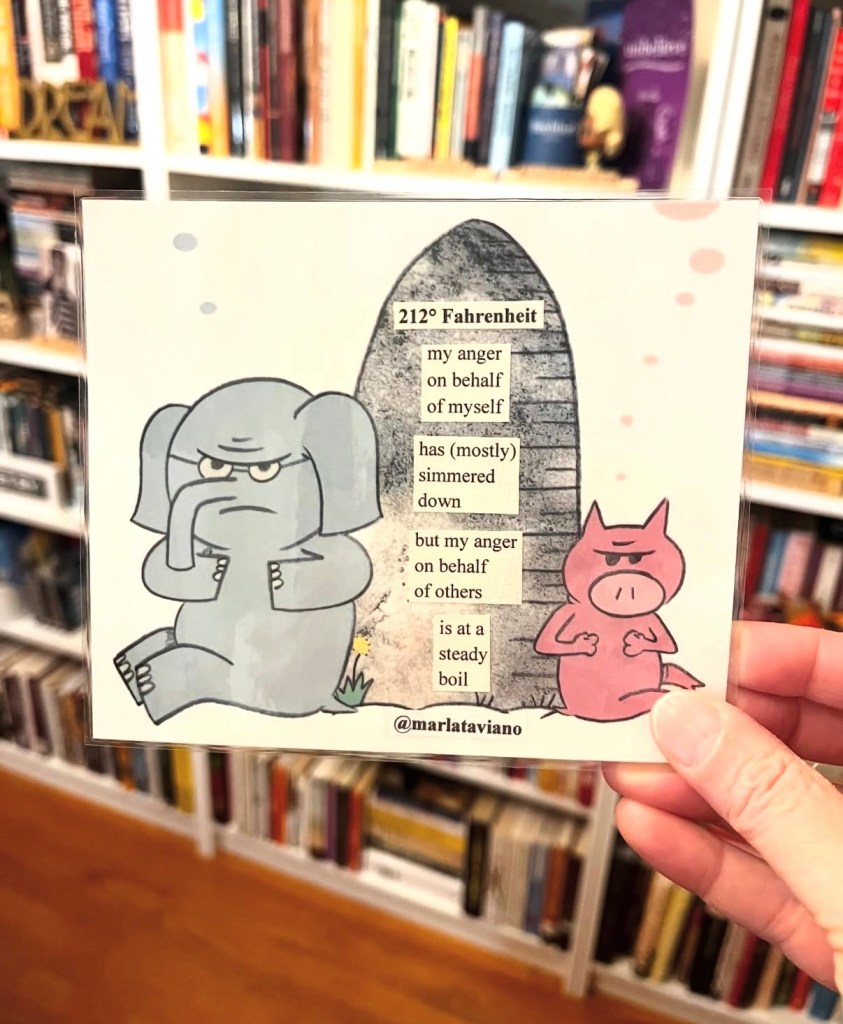 DREAM
212° Fahrenheit
my anger
on behalf
of myself
has (mostly)
simmered
down
but my anger
on behalf
of others
is at a
steady
boil
@marlataviano